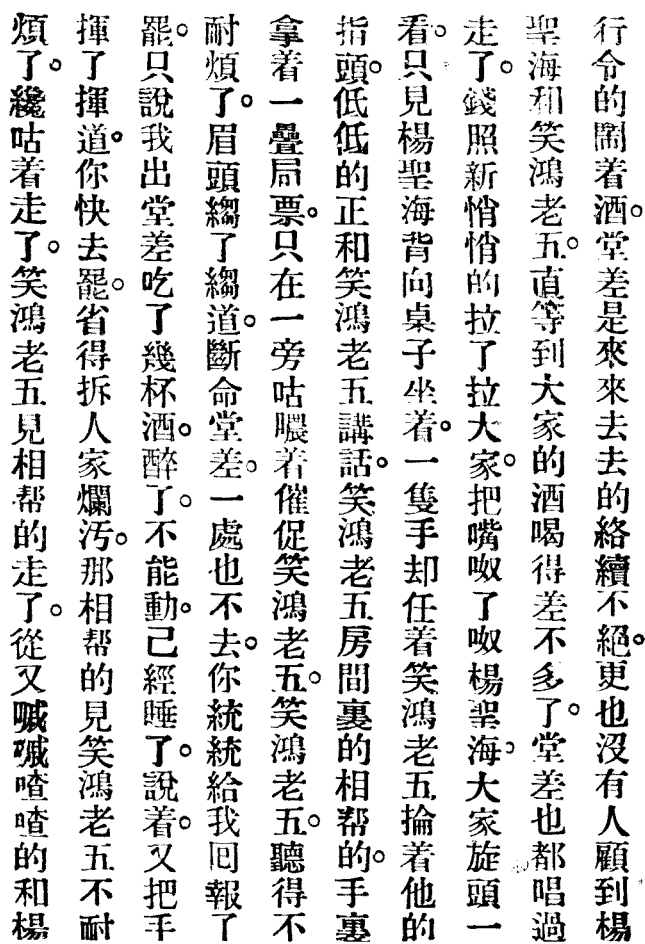 行令的鬧着酒。堂差是來來去去的絡續不絕。更也沒有人顧到楊
聖海和笑鴻老五。直等到大家的酒喝得差不多了。堂差也都唱過
走了。錢照新悄悄的拉了拉大家。把嘴呶了呶楊聖海。大家旋頭一
看。只見楊聖海背向桌子坐着。一隻手却任着笑鴻老五掄着他的
指頭。低低的正和笑鴻老五講話。笑鴻老五房間裏的相帮的。手裏
拿着一疊局票。只在一旁咕噥着催促笑鴻老五。笑鴻老五。聽得不
耐煩了。眉頭縐了縐道。斷命堂差。一處也不去。你統統給我囘報了
罷。只說我出堂差吃了幾杯酒。醉了。不能動。已經睡了。說着。又把手
揮了揮道。你快去罷。省得拆人家爛汚。那相帮的見笑鴻老五不耐
煩了。纔咕着走了。笑鴻老五見相帮的走了。從又嘁嘁喳喳的和楊